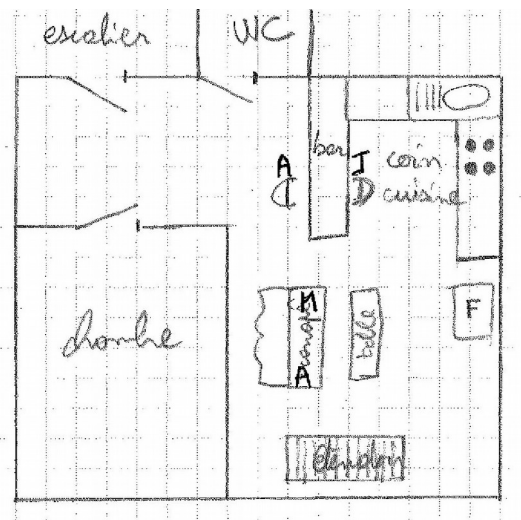 escalier
WC
bar
A
J
coin
cuisine
chambre
M
canapé
A
table
F